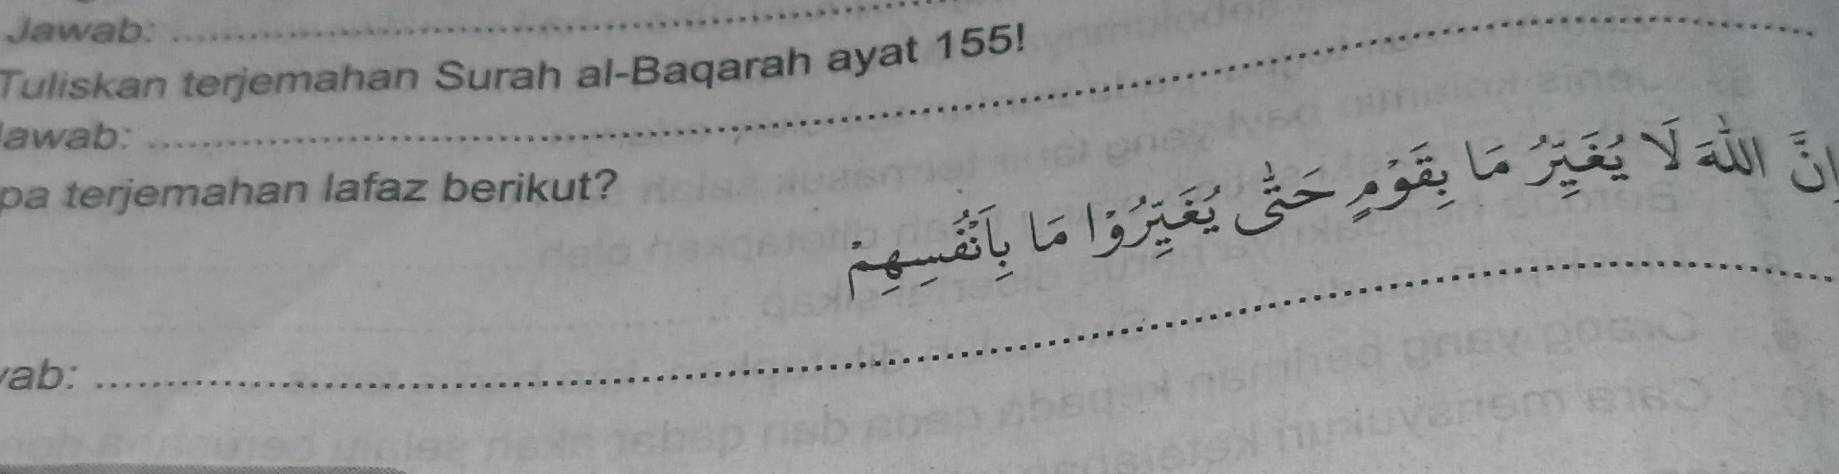 Jawab:
Tuliskan terjemahan Surah al-Baqarah ayat 155!
Jawab:
pa terjemahan lafaz berikut?
اِنَّ اللّٰهَ لَا يُغَيِّرُ مَا بِقَوْمٍ حَتّٰى يُغَيِّرُوْا مَا بِاَنْفُسِهِمْ
wab: